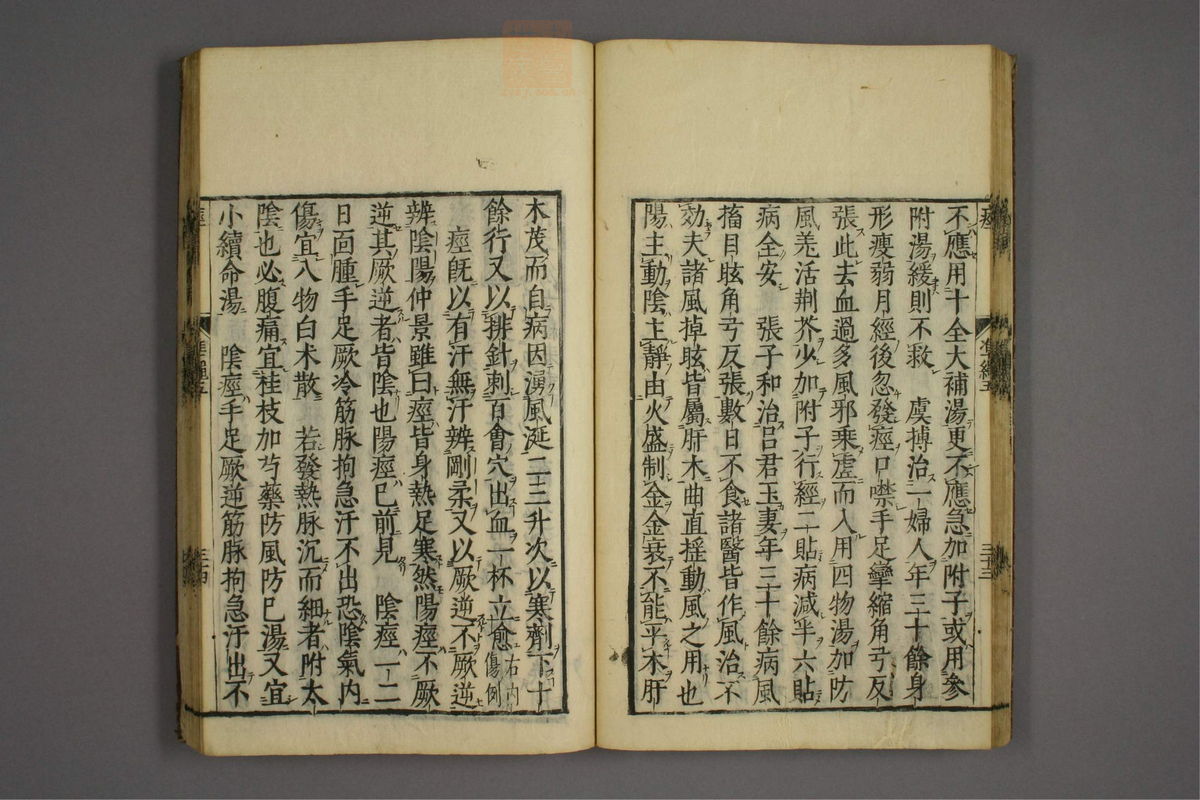 不應用十全大補湯更不應急加附子或用參
附湯緩則不救　虞摶治一婦人年三十餘身
形瘦弱月經後忽發痙口噤手足攣縮角弓反
張此去血過多風邪乘虛而入用四物湯加防
風羗活荆芥少加附子行經二貼病減半六貼
病全安　張子和治呂君玉妻年三十餘病風
搐目眩角弓反張數日不食諸醫皆作風治不
効夫諸風掉眩皆屬肝木曲直揺動風之用也
陽主動陰主靜由火盛制金金衰不能平木肝
木茂而自病因湧風涎二三升次以寒劑下十
餘行又以排針刺百會穴出血一杯立愈右内傷例
痙既以有汗無汗辨剛柔又以厥逆不厥逆
辨陰陽仲景雖曰痙皆身熱足寒然陽痙不厥
逆其厥逆者皆陰也陽痙已前見　陰痙一二
日面腫手足厥冷筋脉拘急汗不出恐陰氣内
傷宜八物白术散　若發熱脉沉而細者附太
陰也必腹痛宜桂枝加芍藥防風防已湯又宜
小續命湯　陰痙手足厥逆筋脉拘急汗出不
痙
準繩五
三十三
痙
準繩五
三十四